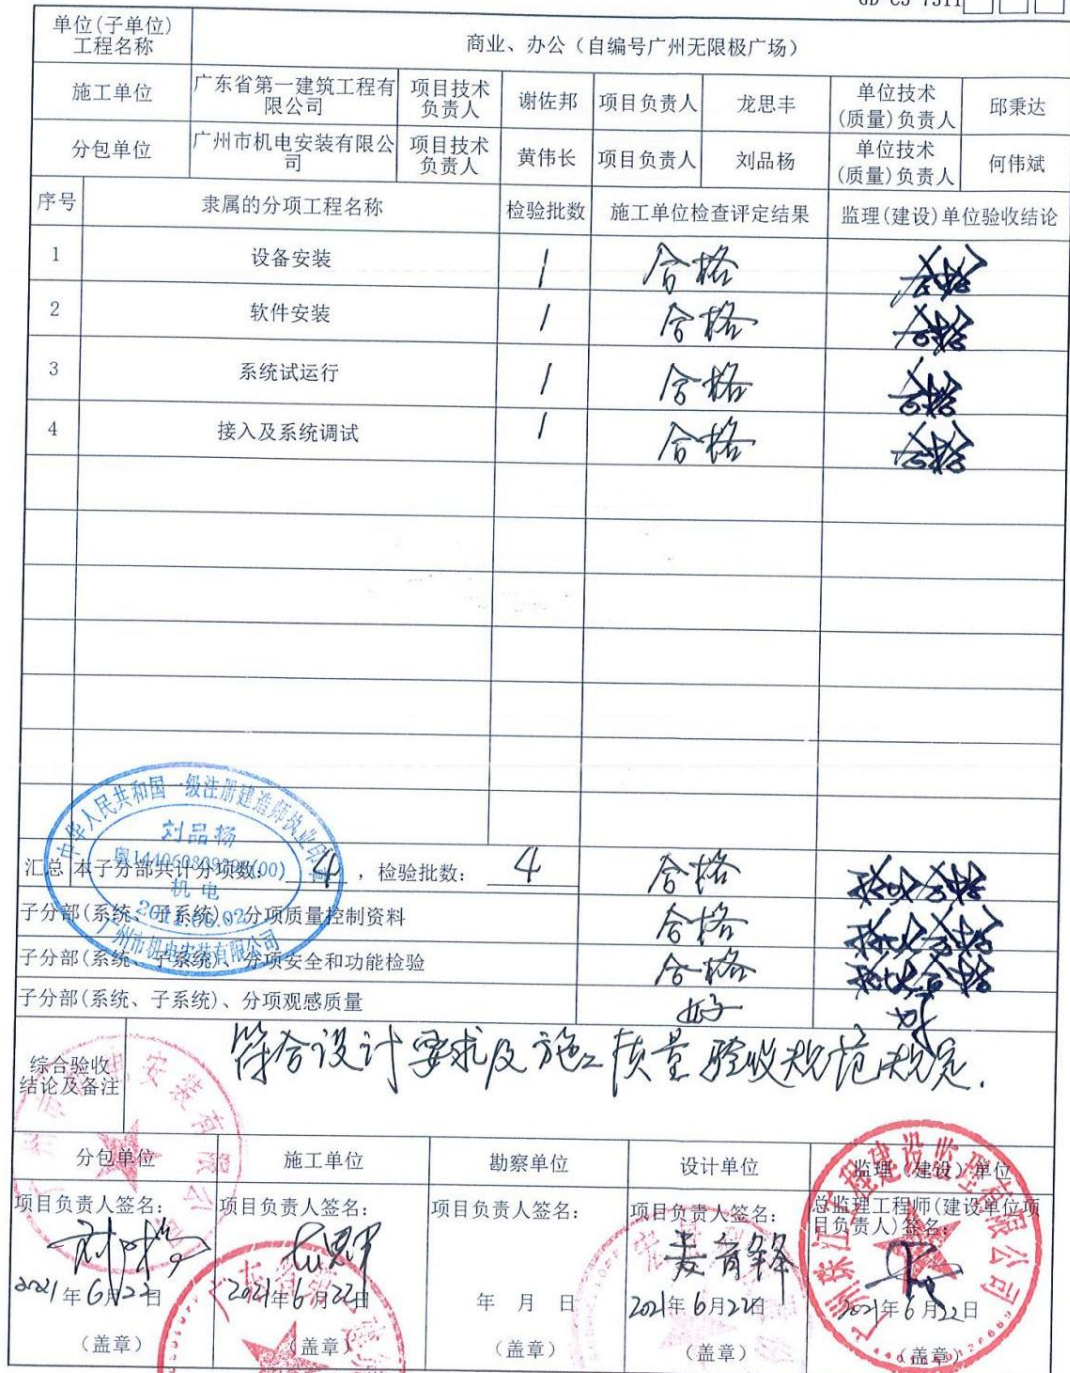 GD-C5-7311
单位(子单位)
工程名称
商业、办公（自编号广州无限极广场）
施工单位
广东省第一建筑工程有
限公司
项目技术
负责人
谢佐邦
项目负责人
龙思丰
单位技术
(质量)负责人
邱秉达
分包单位
广州市机电安装有限公
司
项目技术
负责人
黄伟长
项目负责人
刘品杨
单位技术
(质量)负责人
何伟斌
序号 隶属的分项工程名称 检验批数 施工单位检查评定结果 监理(建设)单位验收结论
1 设备安装 1 合格 合格
2 软件安装 1 合格 合格
3 系统试运行 1 合格 合格
4 接入及系统调试 1 合格 合格
中华人民共和国一级注册建造师执业印章
刘品杨
机电
广州市机电安装有限公司
汇总 本子分部共计分项数: 4 ，检验批数: 4 合格 验收合格
子分部(系统、子系统)、分项质量控制资料 合格 验收合格
子分部(系统、子系统)、分项安全和功能检验 合格 验收合格
子分部(系统、子系统)、分项观感质量 好 好
综合验收
结论及备注
符合设计要求及施工质量验收规范规定.
分包单位 施工单位 勘察单位 设计单位 监理(建设)单位
项目负责人签名:
2021年6月22日
(盖章)
项目负责人签名:
2021年6月22日
(盖章)
项目负责人签名:
年 月 日
(盖章)
项目负责人签名:
2021年6月22日
(盖章)
总监理工程师(建设单位项
目负责人)签名:
2021年6月22日
(盖章)
广州珠江工程建设监理有限公司